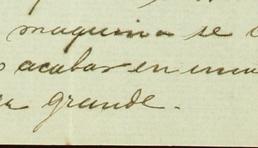 maquina se
acabar en una
grande.